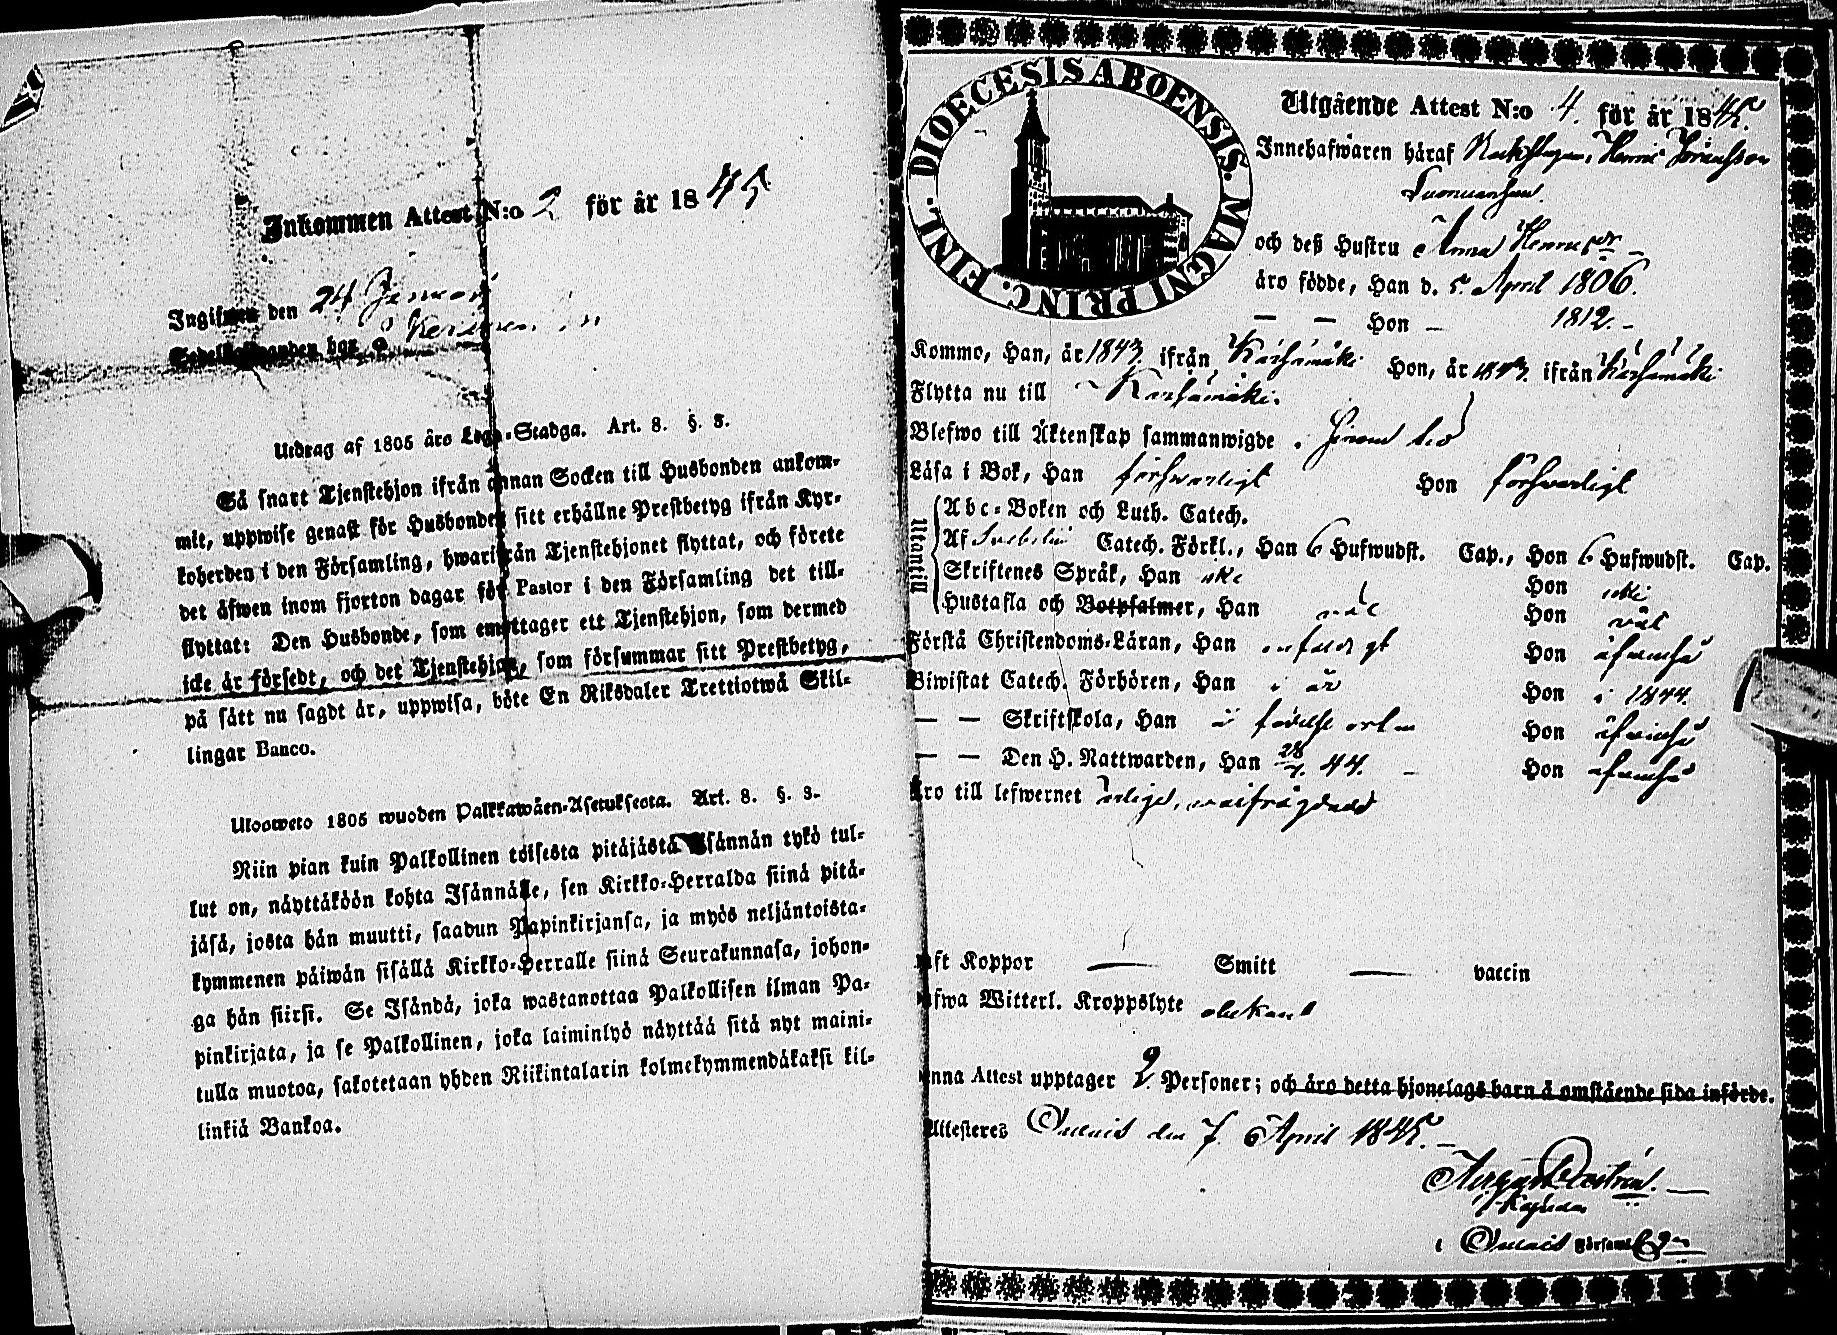 Inkommen Attest N:o 2 för år 1845
Ingifwen den 24 Januari
Utdrag af 1805 års Lego-Stadga. Art. 8. §. 3.
Så snart Tjenstehjon ifrån annan Socken till Husbonden ankom-
mit, uppwise genast för Husbonden sitt erhållne Prestbetyg ifrån Kyr-
koherden i den Församling, hwarifrån Tjenstehjonet flyttat, och förete
det äfwen inom fjorton dagar för Pastor i den Församling det till-
flyttat: Den Husbonde, som emottager ett Tjenstehjon, som dermed
icke är försedt, och det Tjenstehjon, som försummar sitt Prestbetyg,
på sätt nu sagdt är, uppwisa, böte En Riksdaler Trettiotwå Skil-
lingar Banco.
Ulosweto 1805 wuoden Palkkawäen-Asetuksesta. Art. 8. §. 3.
Niin pian kuin Palkollinen toisesta pitäjästä Isännän tykö tul-
lut on, näyttäköön kohta Isännälle, sen Kirkko-Herralda siinä pitä-
jäsä, josta hän muutti, saadun Papinkirjansa, ja myös neljäntoista-
kymmenen päiwän sisällä Kirkko-Herralle siinä Seurakunnasa, johon-
ga hän siirsi. Se Isändä, joka wastanottaa Palkollisen ilman Pa-
pinkirjata, ja se Palkollinen, joka laiminlyö näyttää sitä nyt maini-
tulla muotoa, sakotetaan yhden Riikintalarin kolmekymmendäkaksi kil-
linkiä Bankoa.
DIOECESIS ABOENSIS. MAGNI PRINC. FINL.
Utgående Attest N:o 4. för år 1845.
Innehafwaren häraf Henric
och deß Hustru Anna Henricsdr
äro födde, Han d. 5. April 1806.
— — Hon – 1812. –
Kommo, Han, år 1843. ifrån Kärsämäki Hon, år 1843. ifrån Kärsämäki
Flytta nu till Kärsämäki.
Blefwo till Äktenskap sammanwigde
Läsa i Bok, Han försvarligt Hon försvarligt
Utantill
Abc-Boken och Luth. Catech.
Af Svebilii Catech. Förkl., Han 6 Hufwudst. Cap., Hon 6 Hufwudst. Cap.
Skriftenes Språk, Han icke Hon icke
Hustafla och Botpsalmer, Han väl Hon väl
Förstå Christendoms-Läran, Han enfaldigt Hon äfvenså
Biwistat Catech. Förhören, Han i år Hon i 1844.
— — Skriftskola, Han å födelse orten Hon äfvenså
— — Den H. Nattwarden, Han 28/7. 44. Hon äfvenså
Äro till lefwernet ärliga,
aft Koppor — Smitt — vaccin
afwa Witterl. Kroppslyte obekant
enna Attest upptager 2 Personer; och äro detta hjonelags barn å omstående sida införde.
Attesteres den 7. April 1845.
August
i Församl